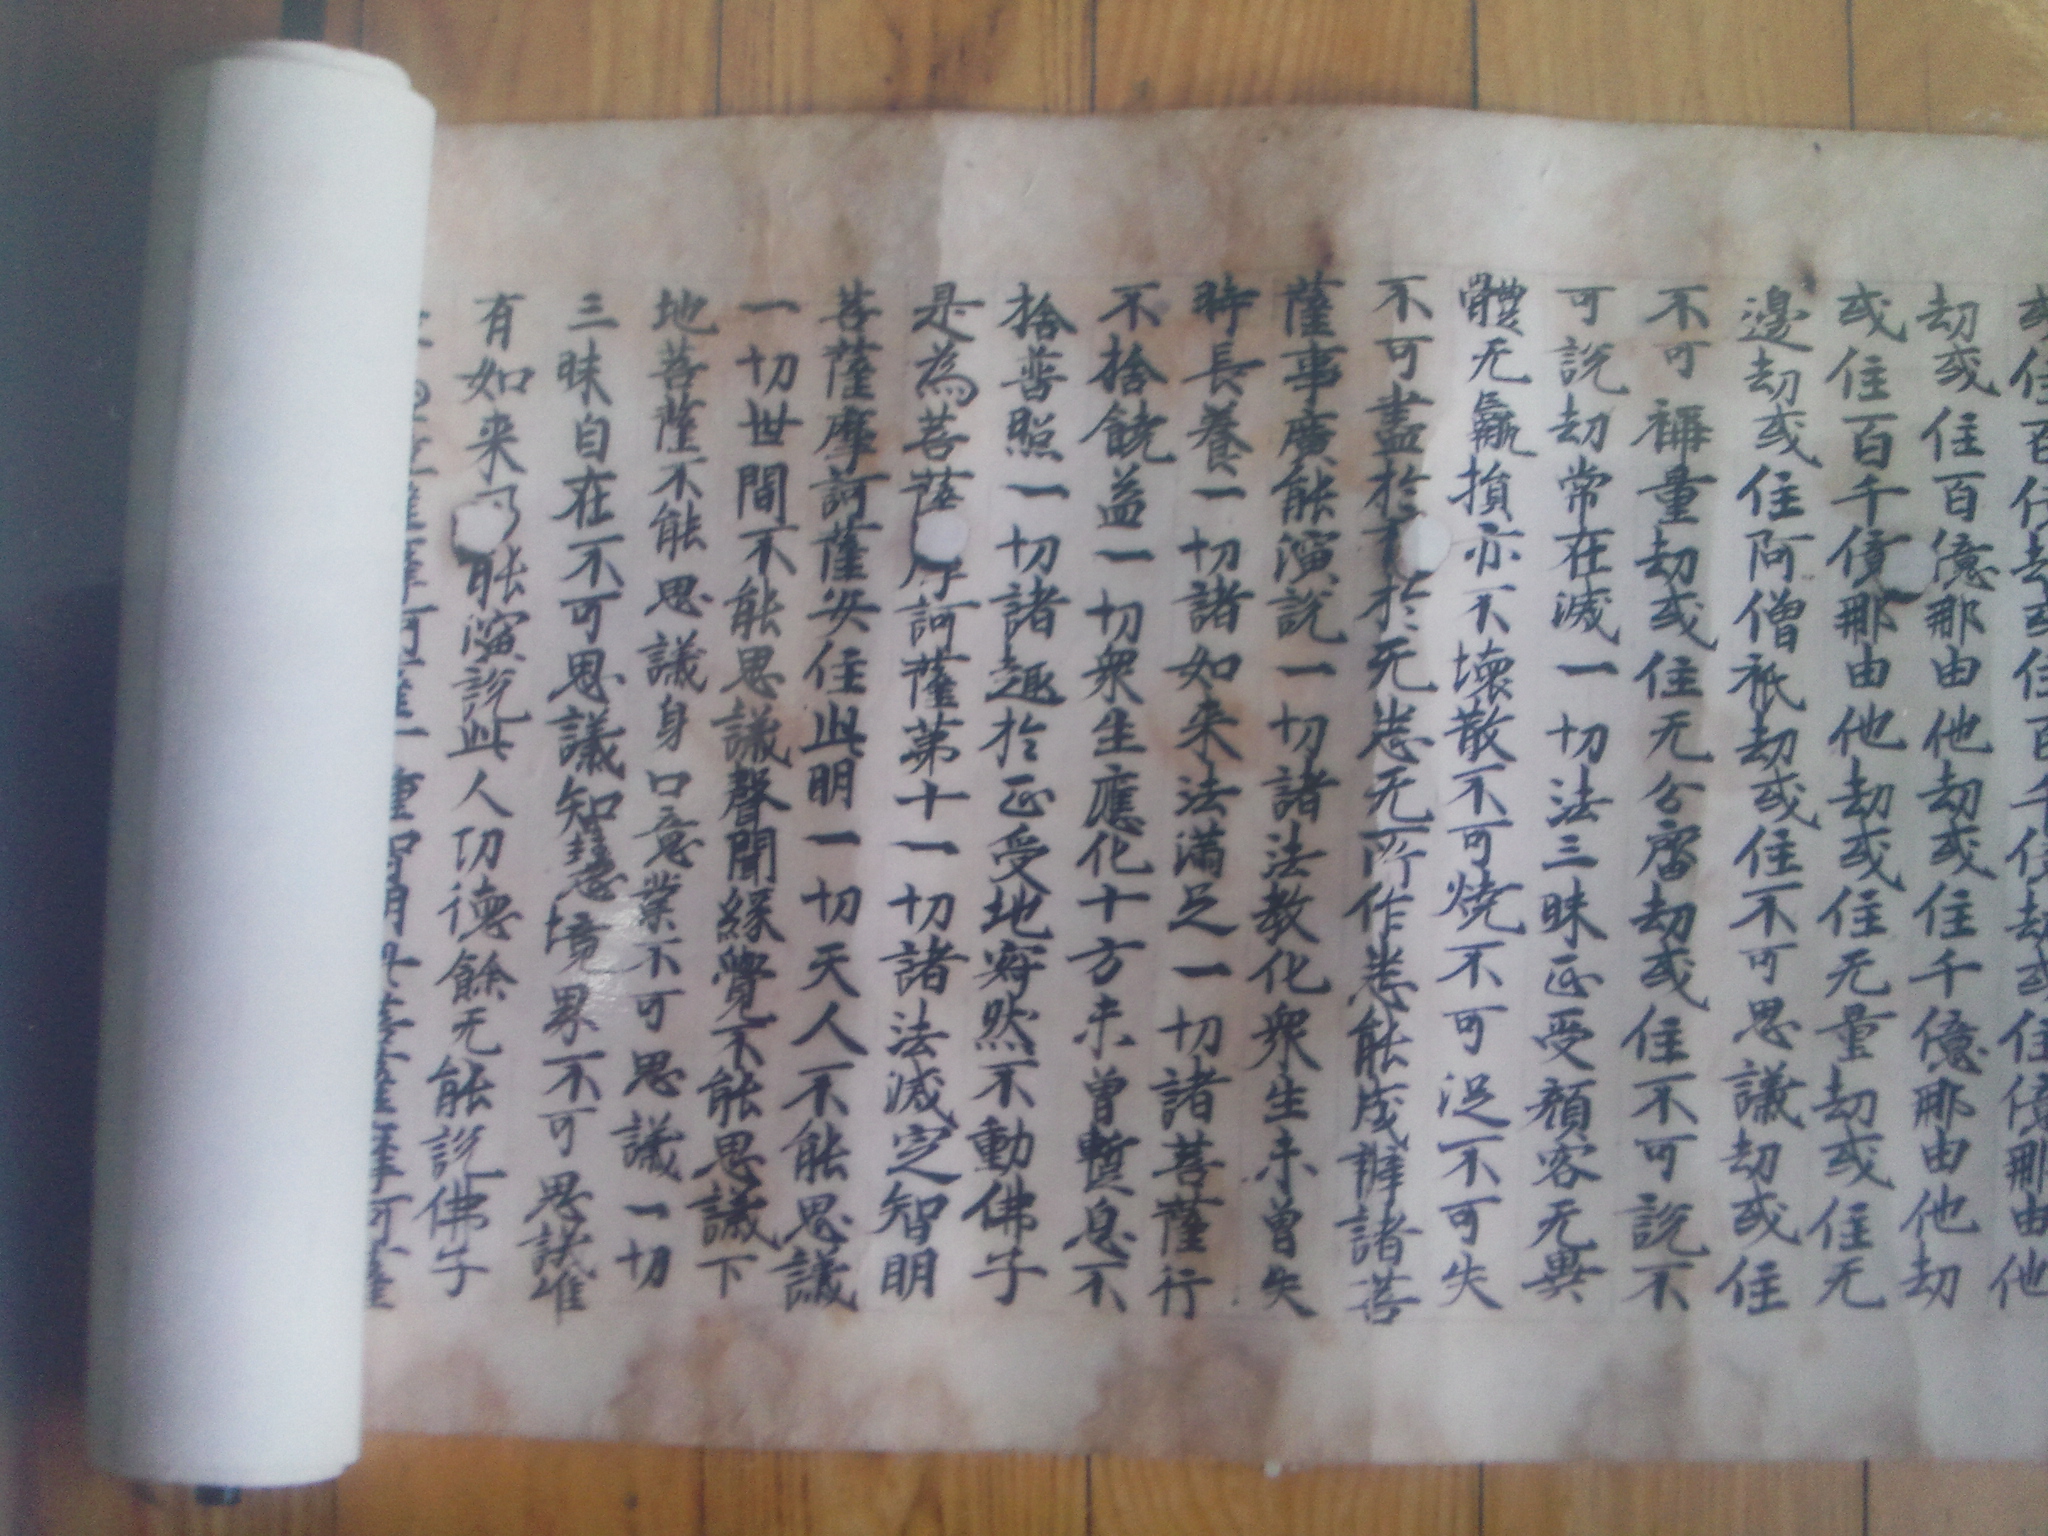 或住百千劫或住百千億劫或住億那由他
劫或住百億那由他劫或住千億那由他劫
或住百千億那由他劫或住无量劫或住无
邊劫或住阿僧祇劫或住不可思議劫或住
不可稱量劫或住无分齊劫或住不可說不
可說劫常在滅一切法三昧正受顏容无異
體无羸損亦不壞散不可燒不可沒不可失
不可盡於有於无悉无所作悉能成辦諸菩
薩事廣能演說一切諸法教化衆生未曾失
時長養一切諸如来法滿足一切諸菩薩行
不捨饒益一切衆生應化十方未曾暫息不
捨普照一切諸趣於正受地寂然不動佛子
是為菩薩摩訶薩第十一切諸法滅定智明
菩薩摩訶薩安住此明一切天人不能思議
一切世間不能思議聲聞緣覺不能思議下
地菩薩不能思議身口意業不可思議一切
三昧自在不可思議知慧境界不可思議唯
有如来乃能演說此人功德餘无能說佛子